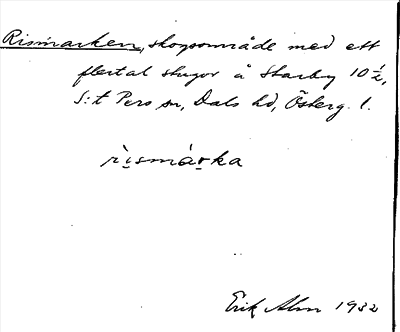 Rismarken, skogsområde med ett
flertal stugor å Skarby 10 1/2,
S:t Pers sn, Dals hd, Österg. l.
rismárka
Erik Alm 1932